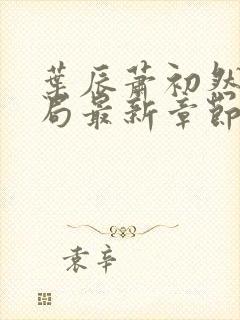 葉辰蕭初然
局最新章節
袁辛